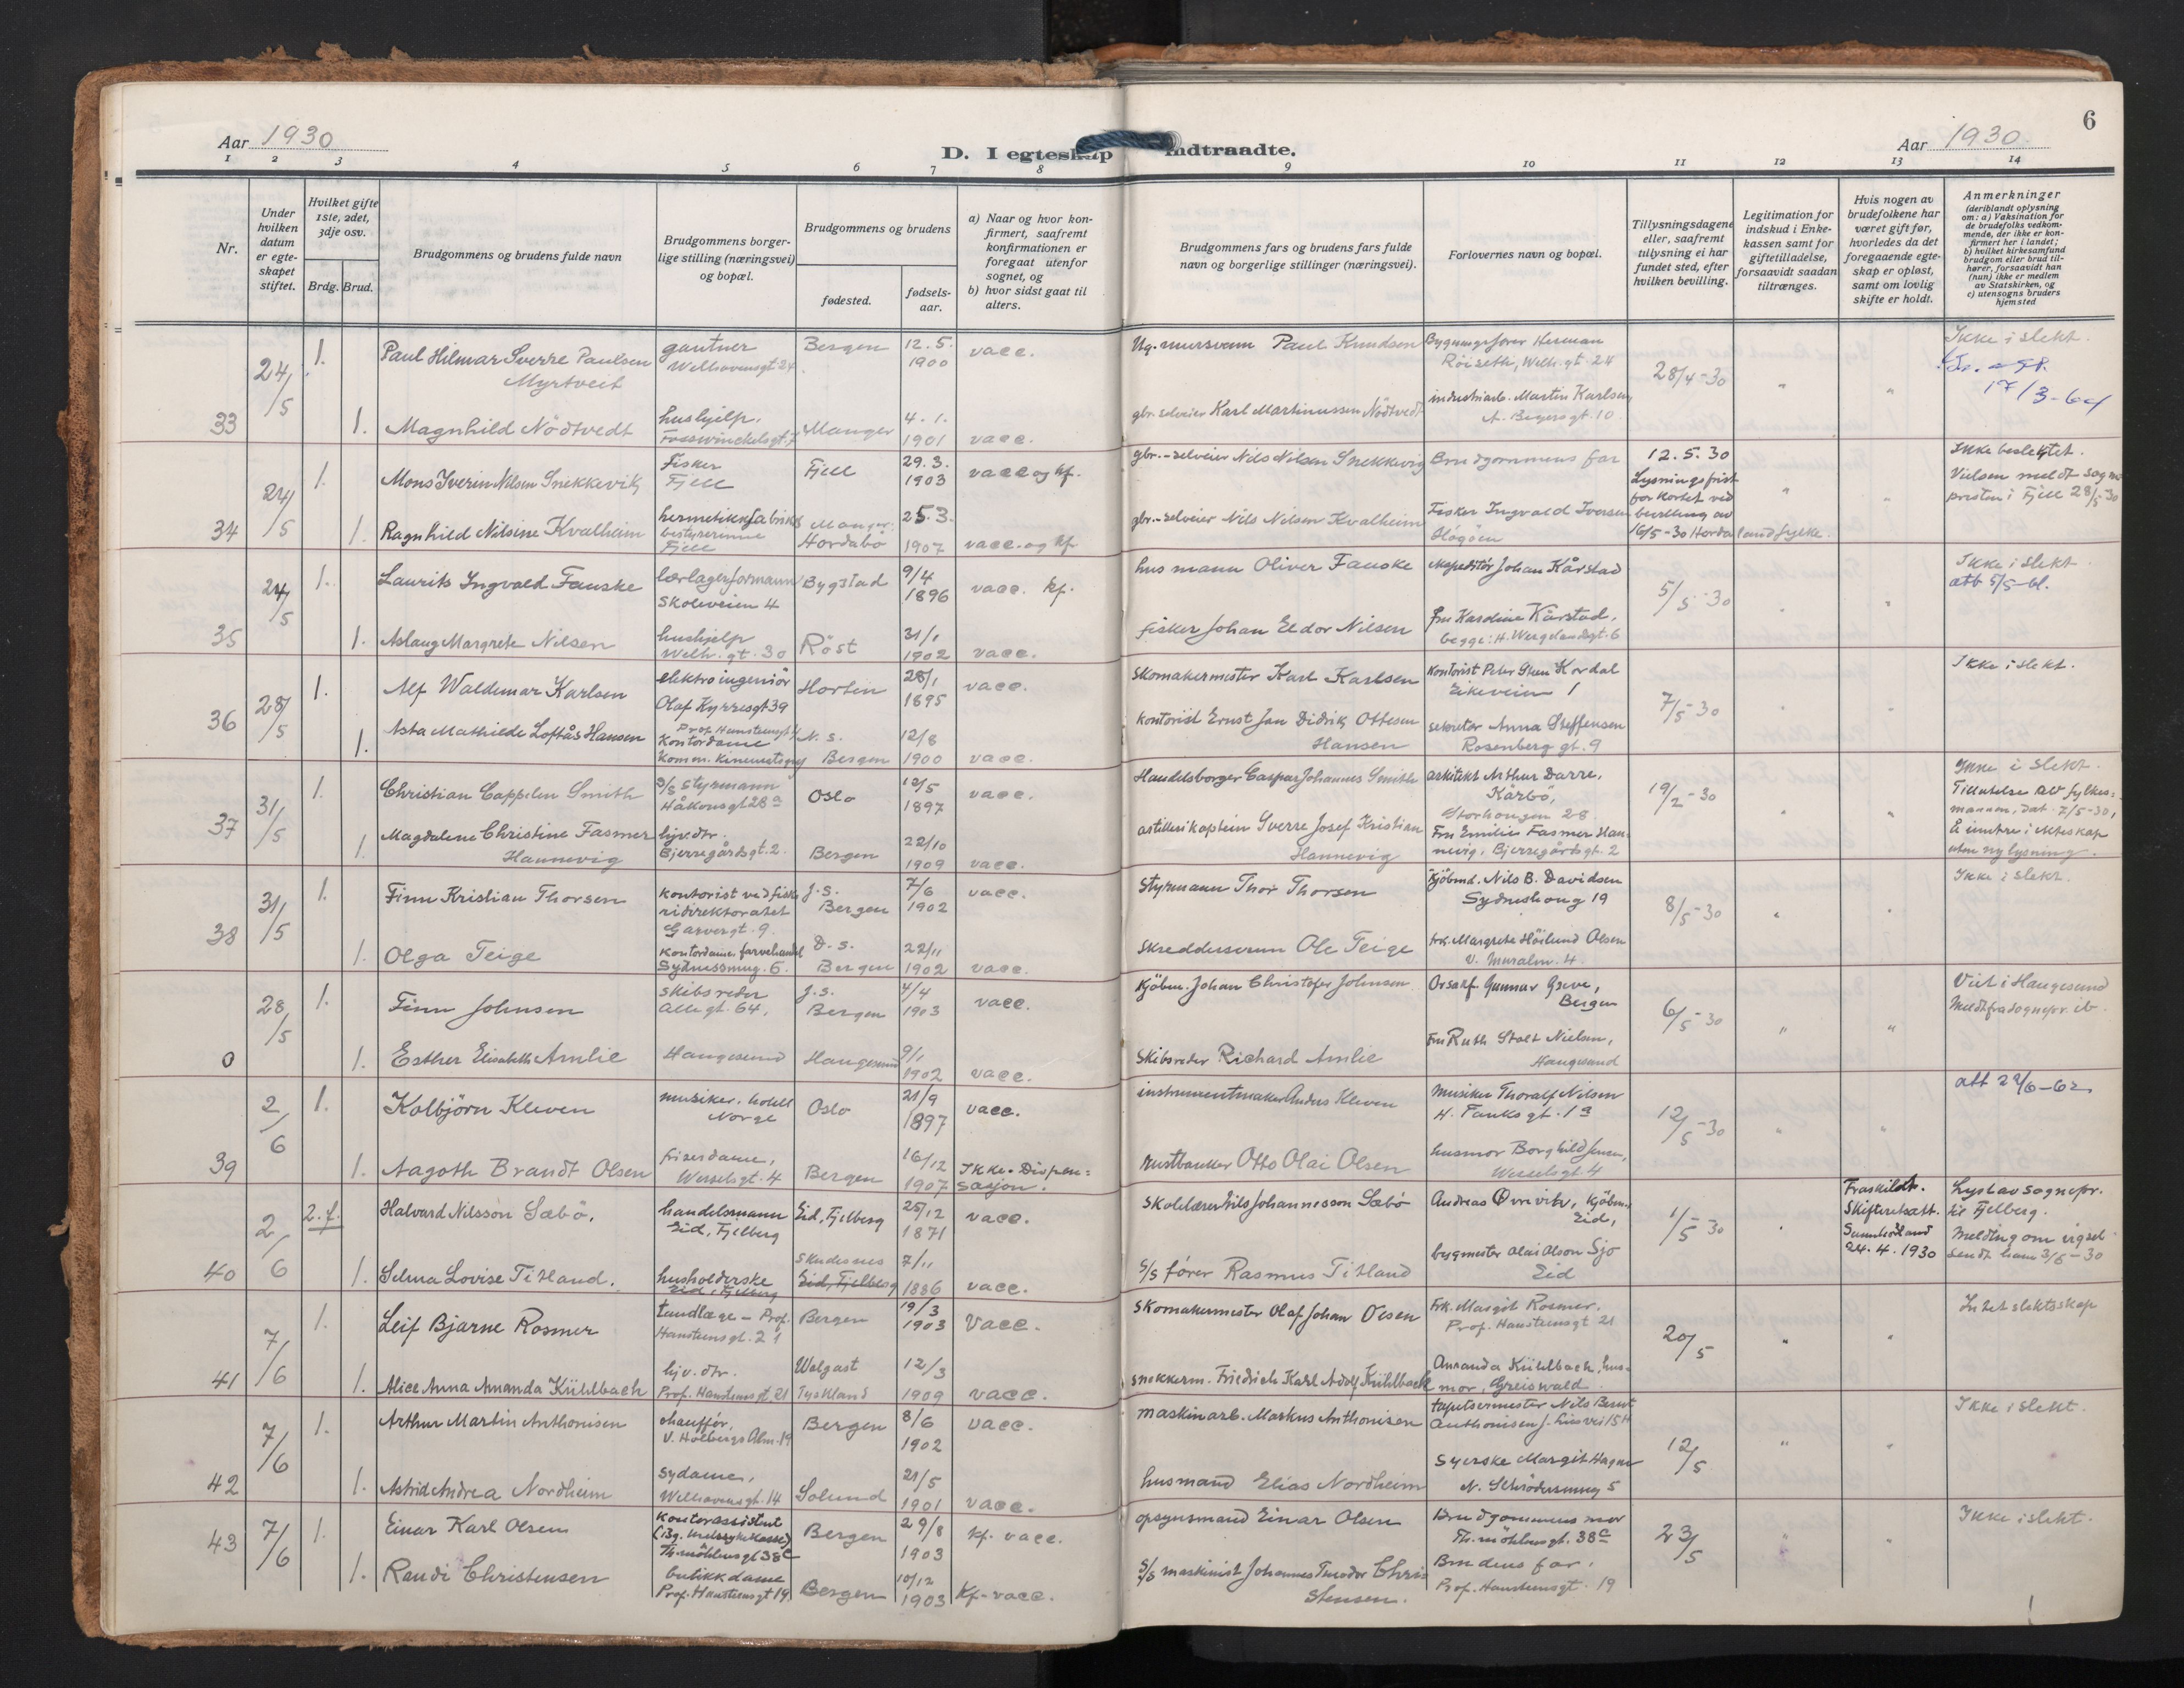 6
Aar 1930
D. I egteskap indtraadte.
Aar 1930
1 2 3 4 5 6 7 8 9 10 11 12 13 14
Nr.
Under hvilken datum er egteskapet stiftet.
Hvilket gifte 1ste, 2det, 3dje osv.
Brdg. Brud.
Brudgommens og brudens fulde navn
Brudgommens borgerlige stilling (næringsvei) og bopæl.
Brudgommens og brudens
fødested.
fødselsaar.
a) Naar og hvor konfirmert, saafremt konfirmationen er foregaat utenfor sognet, og
b) hvor sidst gaat til alters.
Brudgommens fars og brudens fars fulde navn og borgerlige stillinger (næringsvei).
Forlovernes navn og bopæl.
Tillysningsdagene eller, saafremt tillysning ei har fundet sted, efter hvilken bevilling.
Legitimation for indskud i Enkekassen samt for giftetilladelse, forsaavidt saadan tiltrænges.
Hvis nogen av brudefolkene har været gift før, hvorledes da det foregaaende egteskap er opløst, samt om lovlig skifte er holdt.
Anmerkninger
(deriblandt oplysning om: a) Vaksination for de brudefolks vedkommende, der ikke er konfirmert her i landet; b) hvilket kirkesamfund brudgom eller brud tilhører, forsaavidt han (hun) ikke er medlem av Statskirken, og c) utensogns bruders hjemsted
33 24/5 1. Paul Hilmar Sverre Paulsen Myrtveit gartner Welhavensgt 24 Bergen 12.5. 1900 vacc. Ug. mursvenn Paul Knudsen Bygningsfører Herman Röiseth, Welh. gt. 24 28/4-30 Ikke i slekt.
17/3-64
1. Magnhild Nödtvedt hushjelp. Fosswinckelsgt. 7 Manger 4.1. 1901 vacc. gbr. selveier Karl Martinussen Nödtvedt industriarb. Martin Karlsen, A. Beyersgt. 10
34 24/5 1. Mons Iverin Nilsen Snekkevik Fisker Fjell Fjell 29.3. 1903 vacc og kf. gbr.-selveier Nils Nilsen Snekkevig Brudgommens far 12.5.30 Lysningsfrist forkortet ved bevilling av 16/5-30 Hordaland fylke. Ikke beslektet. Vielsen meldt sognepresten i Fjell 28/5-30
1. Ragnhild Nilsine Kvalheim hermetikkfabrikk bestyrerinne Fjell Manger: Hordabö 25.3. 1907 vacc. og kf gbr.-selveier Nils Nilsen Kvalheim Fisker Ingvald Iversen Högöen
35 24/5 1. Laurits Ingvald Fauske lærlagerformann Skoleveien 4 Bygstad 9/4 1896 vacc. kf. husmann Oliver Fauske ekspeditör Johan Kårstad 5/5-30 Ikke i slekt. att 5/5-61.
1. Aslaug Margrete Nilsen hushjelp Welh. gt. 30 Röst 31/1 1902 vacc. fisker Johan Eldor Nilsen fru Karoline Kårstad, begge: H. Wergelandsgt. 6
36 28/5 1. Alf Waldemar Karlsen elektroingeniör Olaf Kyrresgt 39 Horten 28/1 1895 vacc. Skomakermester Karl Karlsen Kontorist Peter Steen Hordal Eikeveien 1 7/5-30 Ikke i slekt.
1. Asta Mathilde Loftås Hansen Kontordame Komm. Kinematogr N. s. Bergen 12/8 1900 vacc. Kontorist Ernst Jan Didrik Ottesen Hansen sekretær Anna Steffensen Rosenberg gt. 9
37 31/5 1. Christian Cappelen Smith D/S styrmann Håkonsgt 28a Oslo 12/5 1897 vacc. Handelsborger Caspar Johannes Smith arkitekt Arthur Darre, Kårbö, Storhaugen 28 19/2-30 Ikke i slekt. Tillatelse av fylkesmannen, dat. 7/5-30, å inntre i ekteskap uten ny lysning.
1. Magdalene Christine Fasmer Hannevig hjv. dtr. Bjerregårdsgt. 2. Bergen 22/10 1909 vacc. artillerikaptein Sverre Josef Kristian Hannevig Fru Emilie Fasmer Hannevig, Bjerregårdsgt. 2
38 31/5 1. Finn Kristian Thorsen Kontorist ved fiskeridirektoratet Garvergt. 9. J.s. Bergen 7/6 1902 vacc. Styrmann Thor Thorsen Kjöbmd. Nils B. Davidsen Sydneshaug 19 8/5-30 Ikke i slekt.
1. Olga Teige Kontordame, farvehandel Sydnessmug. 6. D.s. Bergen 22/11 1902 vacc. Skreddersvenn Ole Teige frk. Margrete Höilund Olsen V. Muralm. 4.
0 28/5 1. Finn Johnsen Skibsreder Allegt. 64, J.s. Bergen 4/4 1903 vacc. Kjöbm. Johan Christofer Johnsen Orsakf. Gunnar Greve, Bergen 6/5-30 Viet i Haugesund Meldt fra sognepr. ib.
1. Esther Elisabeth Amlie Haugesund Haugesund 9/1 1902 vacc. Skibsreder Richard Amlie Fru Ruth Stolt Nielsen, Haugesund
39 2/6 1. Kolbjörn Kleven musiker. hotell Norge Oslo 21/9 1897 vacc. instrumentmaker Anders Kleven Musiker Thoralf Nilsen H. Tanksgt. 1a 12/5-30 att 29/6-62
1. Aagoth Brandt Olsen friserdame, Wesselsgt. 4 Bergen 16/12 1907 Ikke. Dispensasjon. rustbanker Otto Olai Olsen husmor Borghild Jensen, Wesselsgt. 4
40 2/6 2. f. Halvard Nilsson Sæbö, handelsmann Eid, Fjelberg Eid, Fjelberg 25/12 1871 vacc. Skolelærer Nils Johannesson Sæbö Andreas Övrevik, Kjöbm. Eid, 1/5-30 Fraskilt. Skifteretsatt. Sunnhordland 24.4.1930 Lyst av sognepr. til Fjelberg. Melding om vigsel sendt ham 3/6-30
1. Selma Lovise Titland. husholderske Eid, Fjelberg Skudesnes Eid, Fjelberg 7/11 1886 vacc. S/S förer Rasmus Titland bygmester Olai Olson Sjo Eid
41 7/6 1. Leif Bjarne Rosmer tandlæge - Prof. Hansteensgt. 21 Bergen 19/3 1903 Vacc. Skomakermester Olaf Johan Olsen Frk. Margit Rosmer, Prof. Hansteensgt 21 20/5 Intet slektsskap
1. Alice Anna Amanda Kühlbach hjv. dtr. Prof. Hansteensgt 21 Wolgast Tyskland 12/3 1909 vacc. snekkerm. Friedrich Karl Adolf Kühlbach Amanda Kühlbach, husmor, Greiswald
42 7/6 1. Arthur Martin Anthonisen chaufför, V. Holbergs Alm. 19 Bergen 8/6 1902 vacc. maskinarb. Markus Anthonisen tapetsermester Nils Bernt Anthonisen 12/5 Ikke i slekt.
1. Astrid Andrea Nordheim sydame, Welhavensgt. 14 Solund 21/5 1901 vacc. husmand Elias Nordheim Syerske Margit Hagen N. Schrödersmug 5
43 7/6 1. Einar Karl Olsen Kontorassistent Th. möhlensgt 38c Bergen 29/8 1903 kf. vacc. opsynsmand Einar Olsen Brudgommens mor Th. möhlensgt. 38c 23/5 Ikke i slekt.
1. Randi Christensen butikkdame Prof. Hansteensgt 19. Bergen 10/12 1903 kf-vacc. S/S maskinist Johannes Theodor Christensen. Brudens far. Prof. Hansteensgt. 19